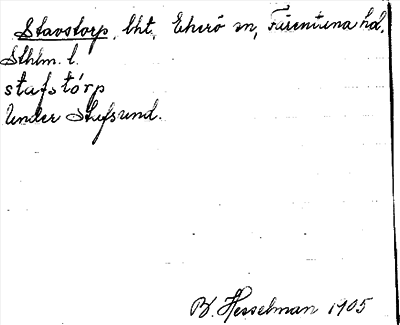 Stavstorp, bht, Ekerö sn, Färentuna hd,
Sthlm. l.
stafstórp
Under Stafsund.
B. Hesselman 1905